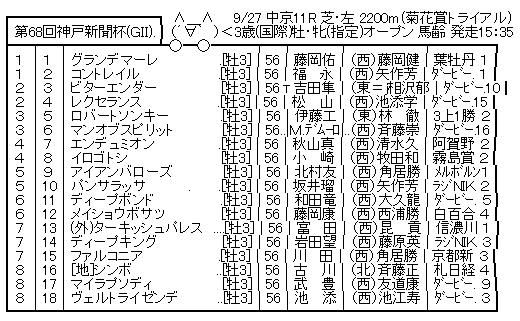 第68回神戸新聞杯(GII). ∧＿∧ (´∀｀) 9/27 中京11R 芝・左 2200m (菊花賞トライアル)
＜3歳(国際)牡・牝(指定)オープン 馬齢 発走15:35
1 | 1 | グランデマーレ ..[牡3] | 56 | 藤岡佑 | (西)藤岡健 | 葉牡丹 1
1 | 2 | コントレイル ..[牡3] | 56 | 福 永 | (西)矢作芳 | ダービー. 1
2 | 3 | ビターエンダー ..[牡3] | 56 | 吉田隼 | (東=相沢郁 | ダービー10
2 | 4 | レクセランス ..[牡3] | 56 | 松 山 | (西)池添学 | ダービー15
3 | 5 | ロバートソンキー ..[牡3] | 56 | 伊藤工 | (東)林 徹 | 3上1勝 2
3 | 6 | マンオブスピリット ..[牡3] | 56 | M.デムーロ | (西)斉藤崇 | ダービー16
4 | 7 | エンデュミオン ..[牡3] | 56 | 秋山真 | (西)清水久 | 阿賀野 2
4 | 8 | イロゴトシ ..[牡3] | 56 | 小 崎 | (西)牧田和 | 霧島賞 2
5 | 9 | アイアンバローズ ..[牡3] | 56 | 北村友 | (西)角居勝 | メルボルン1
5 | 10 | パンサラッサ ..[牡3] | 56 | 坂井瑠 | (西)矢作芳 | ラジNIK 2
6 | 11 | ディープボンド ..[牡3] | 56 | 和田竜 | (西)大久龍 | ダービー. 5
6 | 12 | メイショウボサツ ..[牡3] | 56 | 藤岡康 | (西)西浦勝 | 白百合 4
7 | 13 | (外)ターキッシュパレス ...[牡3] | 56 | 富 田 | (西)昆 貢 | 信濃川 1
7 | 14 | ディープキング ..[牡3] | 56 | 岩田望 | (西)藤原英 | ラジNIK 3
7 | 15 | ファルコニア ..[牡3] | 56 | 川 田 | (西)角居勝 | 京都新 3
8 | 16 | [地]シンボ ..[牡3] | 56 | 古 川 | (北)斉藤正 | 札日経 4
8 | 17 | マイラプソディ ..[牡3] | 56 | 武 豊 | (西)友道康 | ダービー. 9
8 | 18 | ヴェルトライゼンデ ..[牡3] | 56 | 池 添 | (西)池江寿 | ダービー. 3